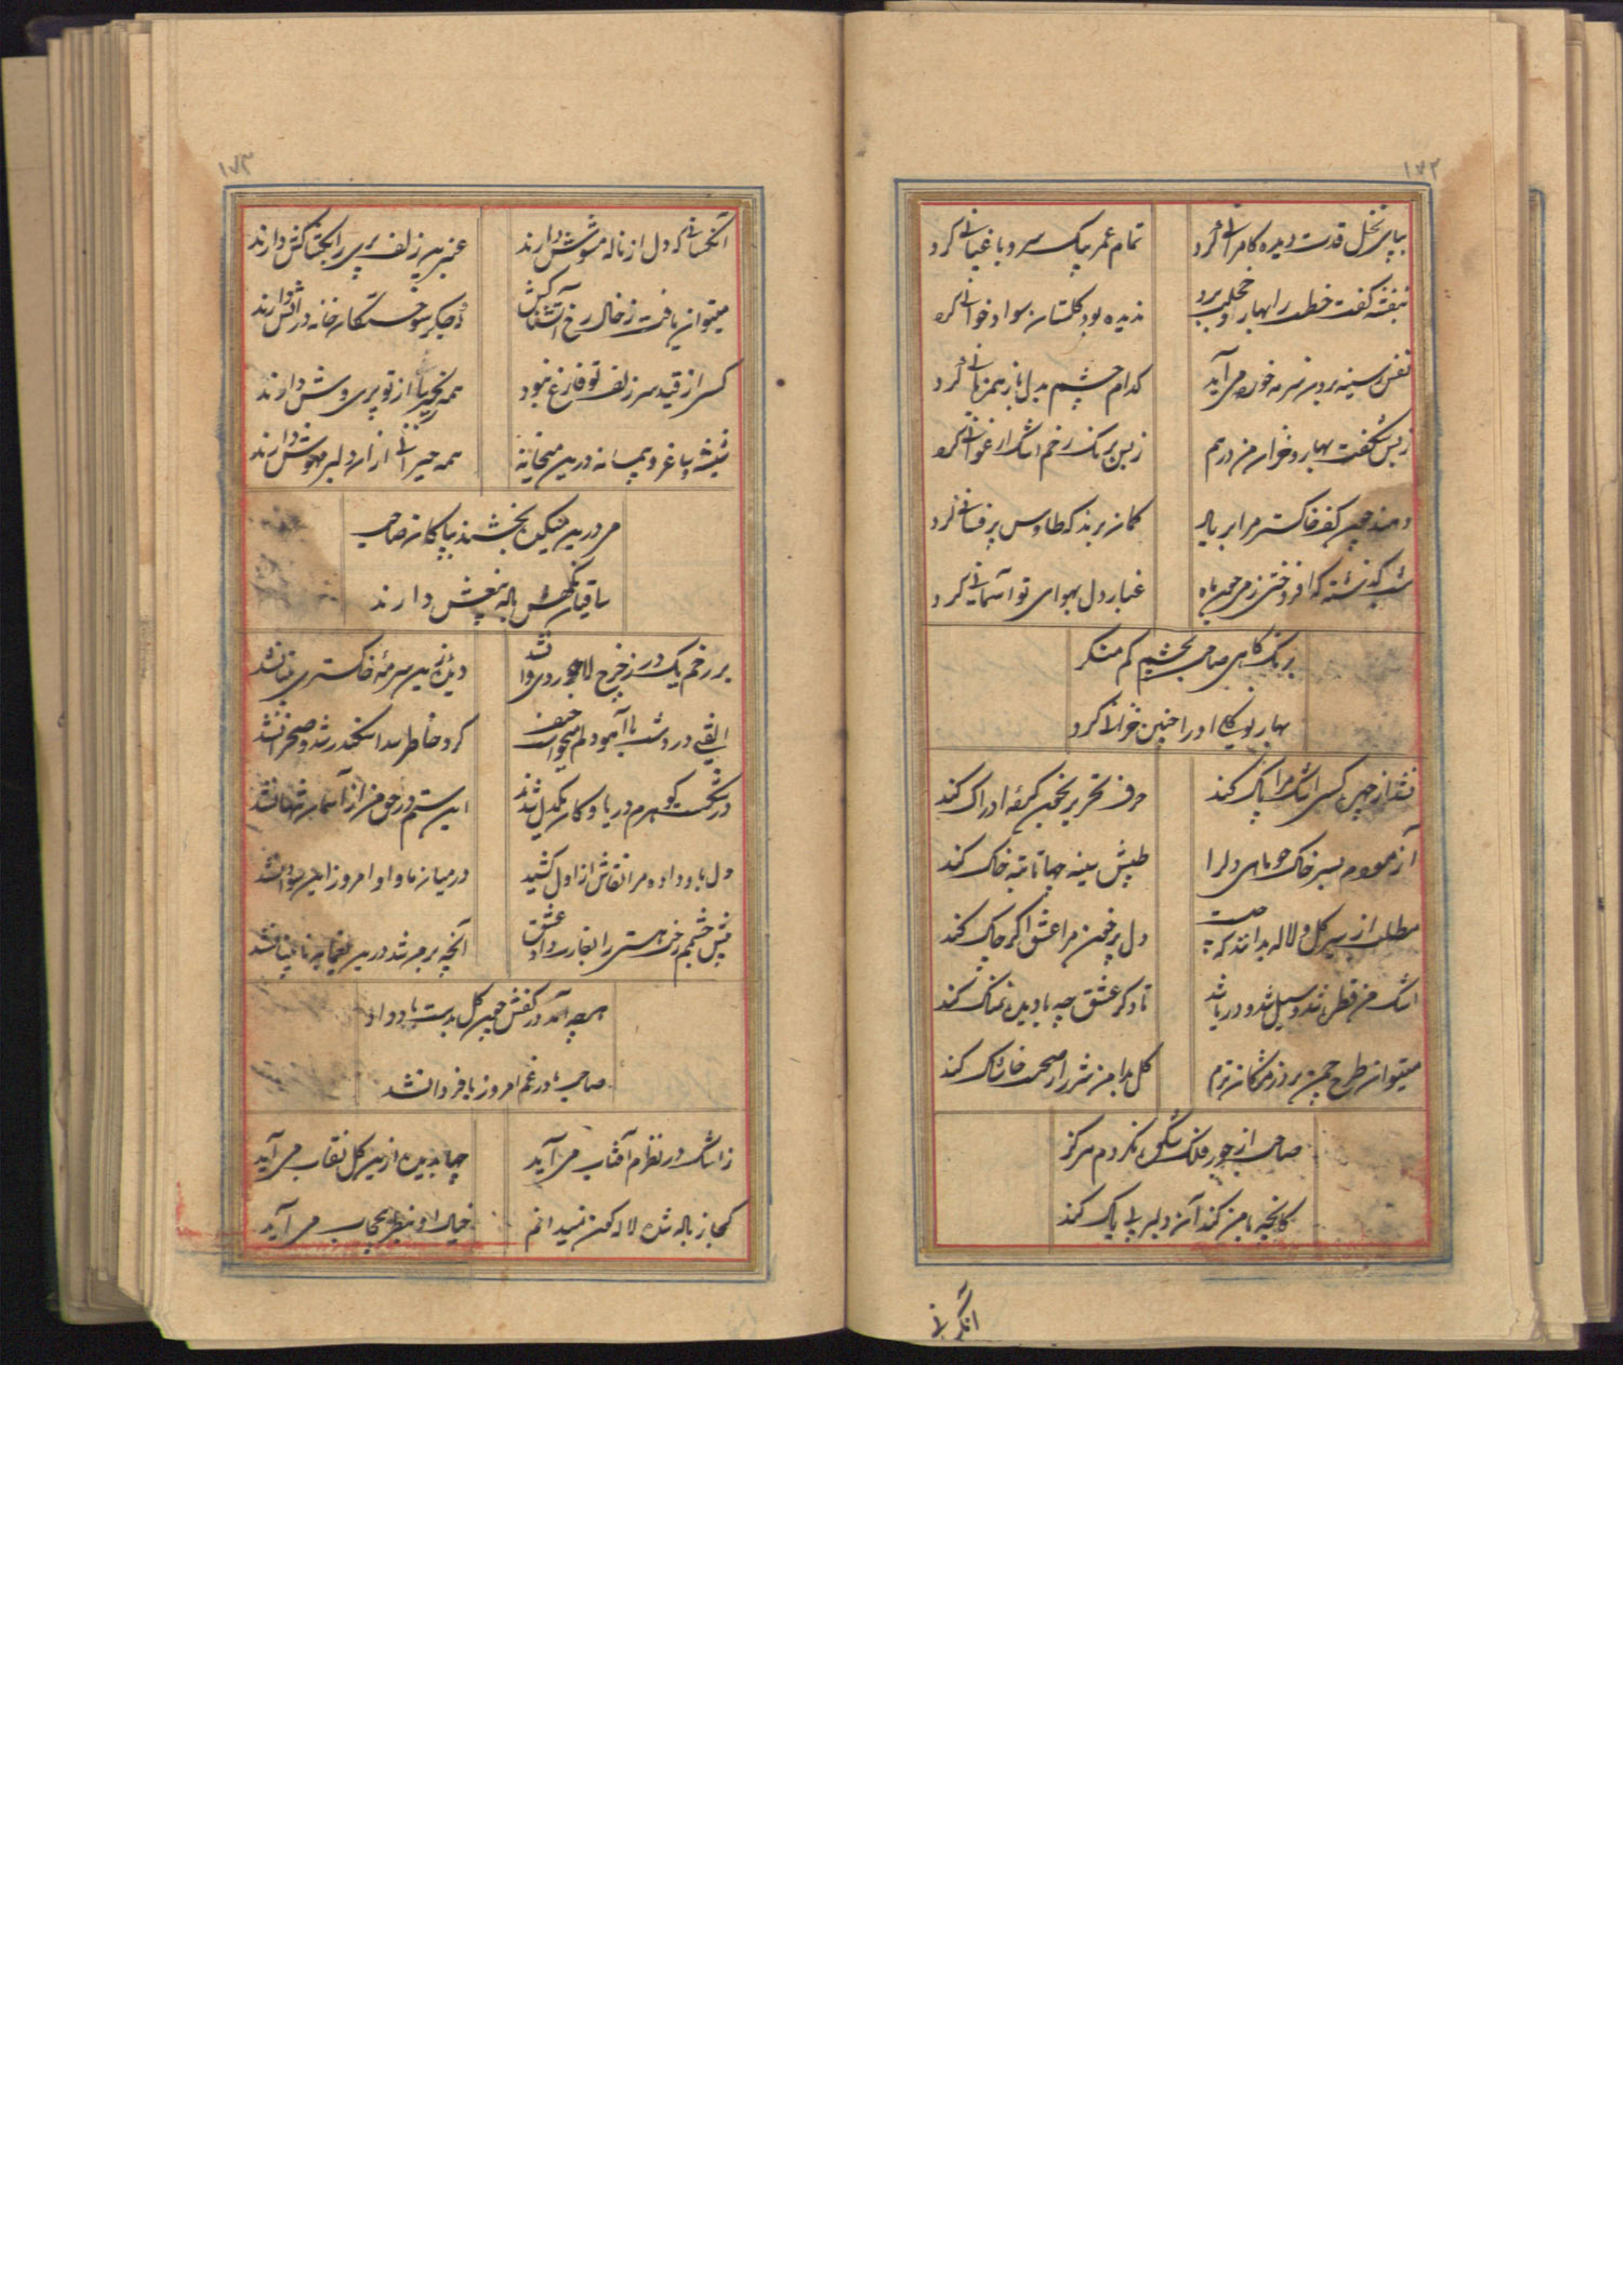 ۱۷۲
بپای نخل قدت دیده کامرانی کرد
تمام عمر بیک سرو باغبانی کرد
بنفشه گفت خطت را بهار و خجلت برد
ندیده بود گلستان سواد خوانی کرد
نفس ز سینه برون سرمه خورده می آید
کدام چشم بدل باز همزبانی کرد
ز بس شکفت بهار و خزان من در هم
زمین برنگ رخم اشک ارغوانی کرد
دهند چون کف خاکستر مرا بر باد
گمان برند که طاوس پرفشانی کرد
غبار دل بهوای تو آسمانی کرد
برنگ کاهی صاحب بچشم کم منگر
بهار بود که او را چنین خزانی کرد
از چین کسی اشک مرا پاک کند
حرف تحریر نخستین کمفه ادراک کند
آزمودم بسر خاک چو ماهی دل را
طپش سینه جها تا بته خاک کند
مطلب از سیر گل و لاله بدانند که چیست
دل پر خون مرا عشق اگر چاک کند
اشک من قطره شد و سیل شد و دریا شد
تا دگر عشق چه با دیده نمناک کند
میتوان طرح چمن بر در مژگان تزم
گل بدامن شرر از صحبت خاشاک کند
صاحب از جور فلک شکوه نکردم هرگز
کانچه با من کند آن دلبر بی باک کند
آنکسانی
۱۷۳
آنکسانی که دل از ناله مشوش دارند
عنبرین زلف پری را بکشاکش دارند
میتوان یافت ز خال رخ آتشناکش
که جگر سوختگان خانه در آتش دارند
کس از قید سر زلف تو فارغ نبود
همه زنجیر بپا از تو پری وش دارند
شیشه و ساغر و پیمانه درین میخانه
همه حیرانی از آن دلبر مهوش دارند
مردمی میکن بخشند بپاکان صاحب
ساقیان گهش باده بیغش دارند
بر رخم یک در ز چرخ لاجوردی وا نشد
دیده ام زین سرمه خاکستری بینا نشد
الفتی در دشت با آهو دلم میخواست حیف
گرد خاطر سد اسکندر شد و صحرا نشد
در شکست گوهرم دریا و کان یکدل شدند
این ستم در حق من از آسمان تنها نشد
دل باو داده مرا نقاش از اول کشید
در میان ما و او امروز این سودا نشد
پیش چشمم رخت هستی را بغارت داد عشق
آنچه بر من شد درین یغما به نابینا نشد
هرچه آمد در کفش چون گل بدست باد داد
صاحب ما در غم امروز یا فردا نشد
ز اشک در نظرم آفتاب می آید
چها بدیده ازین گل نقاب می آید
کجا ز باله شده لاله گون نمیدانم
خیال او بنظر بی حجاب می آید